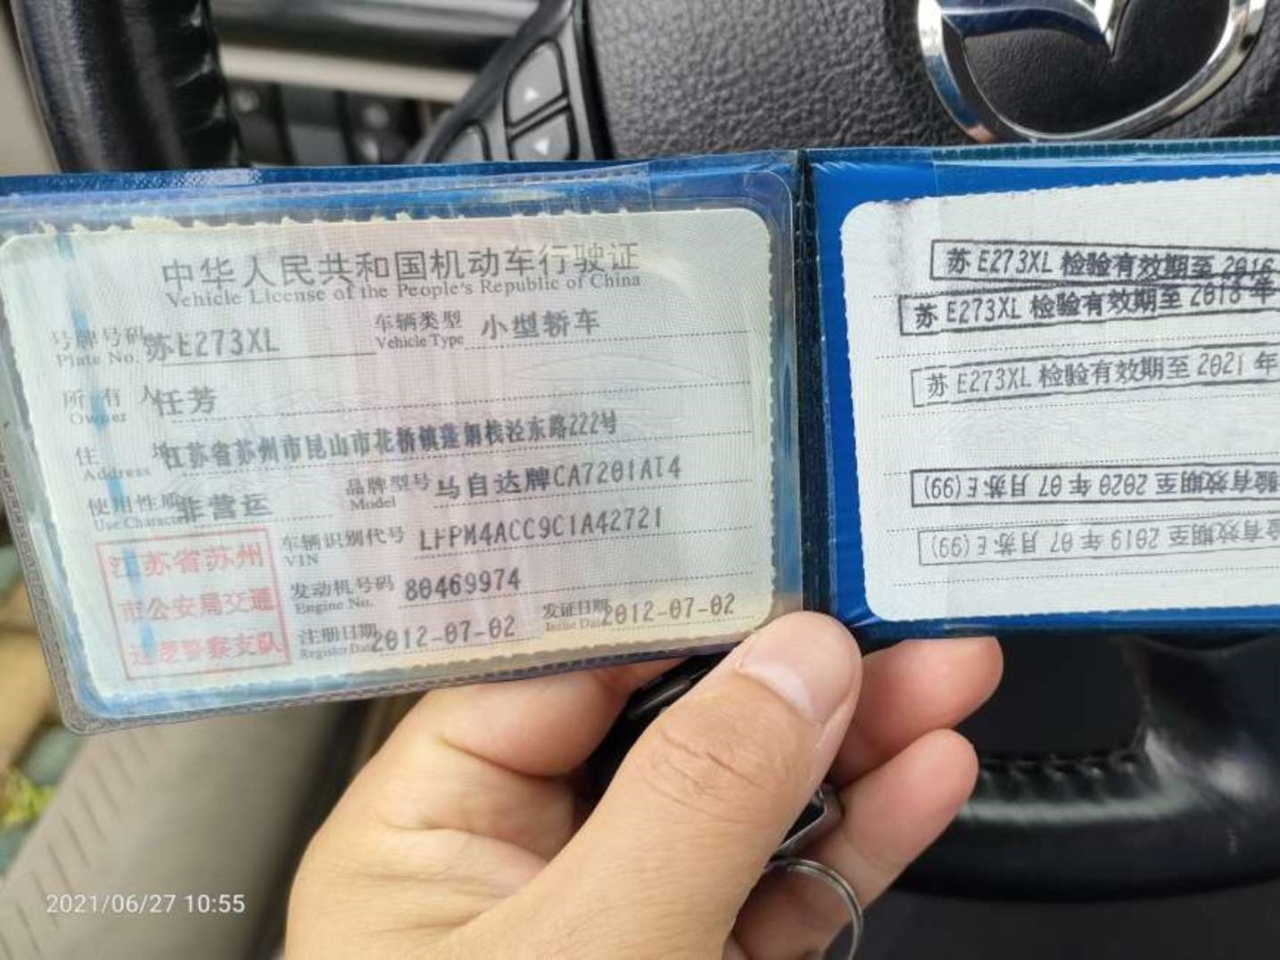 中华人民共和国机动车行驶证
Vehicle License of the People's Republic of China
号牌号码 苏E273XL 车辆类型 小型轿车
Plate No. Vehicle Type
所有人 任芳
Owner
住址 江苏省苏州市昆山市花桥镇蓬朗栈泾东路222号
Address
使用性质 非营运 品牌型号 马自达牌CA7201AT4
Use Character Model
江苏省苏州
市公安局交通
巡逻警察支队
车辆识别代号 LFPM4ACC9C1A42721
VIN
发动机号码 80469974
Engine No.
注册日期 2012-07-02 发证日期 2012-07-02
Register Date Issue Date
苏E273XL 检验有效期至 2016
苏E273XL 检验有效期至 2018 年
苏E273XL 检验有效期至 2021 年
验有效期至 2020 年 07 月苏E(99)
检有效期至 2019 年 07 月苏E(99)
2021/06/27 10:55